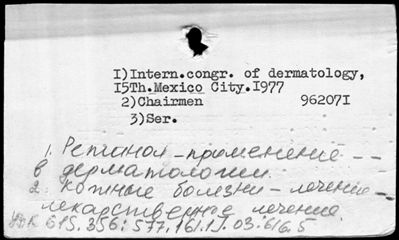 I)Intern.congr. of dermatology,
I5Th.Mexico City.I977
2)Chairmen 96207I
3)Ser.
1. Ретаноя - применение --
в дерматологии.
2. Кожные болезни - лечение -
лекарственное лечение.
УДК 615.356:577.161.1].03:616.5